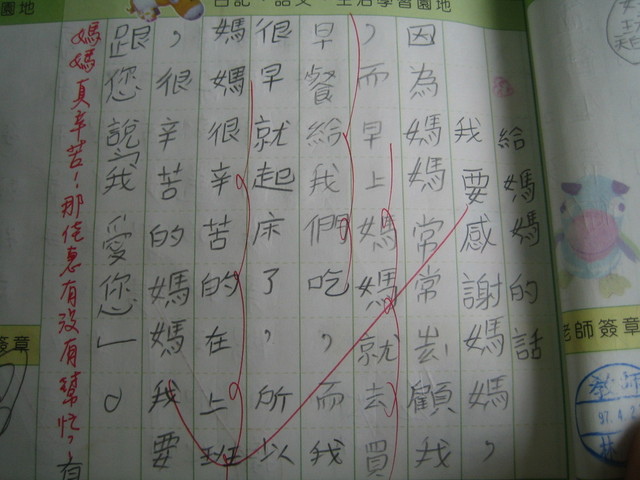 園地
日記、語文、生活學習園地
給媽媽的話
我要感謝媽媽，
因為媽媽常常去顧我
，而早上媽媽就去買
早餐給我們吃，而我
很早就起床了，所以
媽媽很辛苦的在上班
，很辛苦的媽媽我要
跟您說「我愛您」。
媽媽真辛苦！那佳惠有沒有幫忙？有
老師簽章
97.4.2
簽章